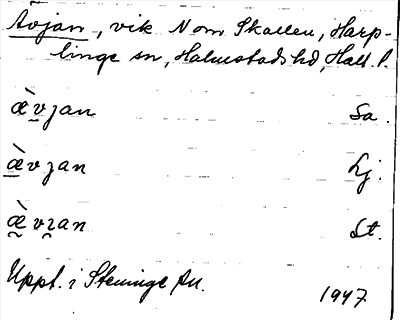 Ävjan, vik N om Skallen, Harp-
linge sn, Halmstads hd, Hall. l.
æ̀vjan Sa.
æ̀vjan Lj.
æ̀vɪan St.
Uppt. i Steninge An.
1947